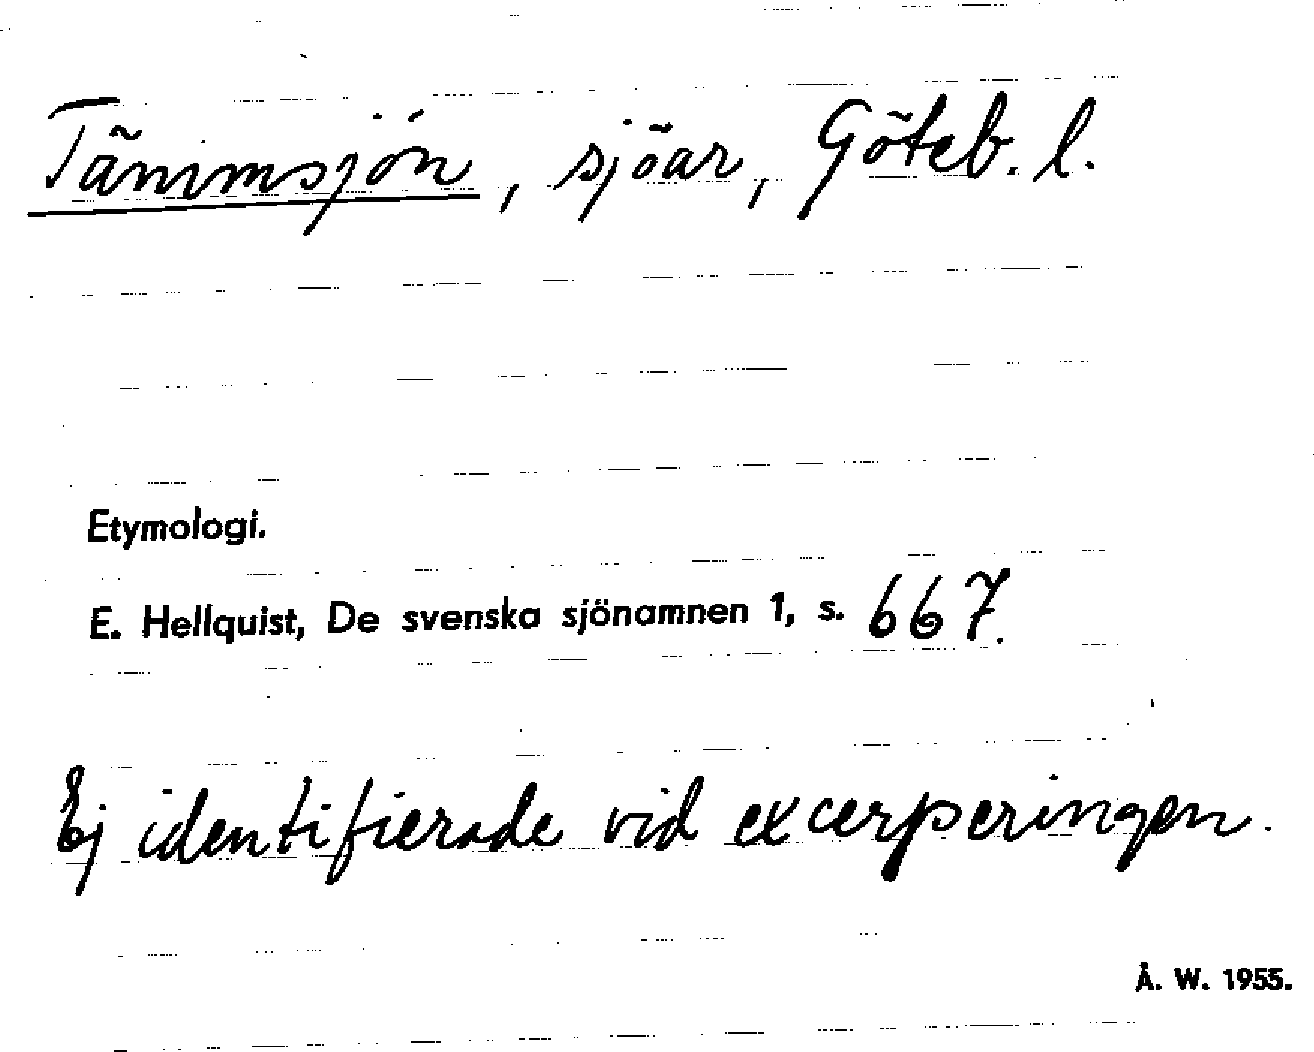 Tämmsjön, sjöar, Göteb. l.
Etymologi.
E. Hellquist, De svenska sjönamnen 1, s. 667.
Ej identifierade vid excerperingen.
Å. W. 1955.